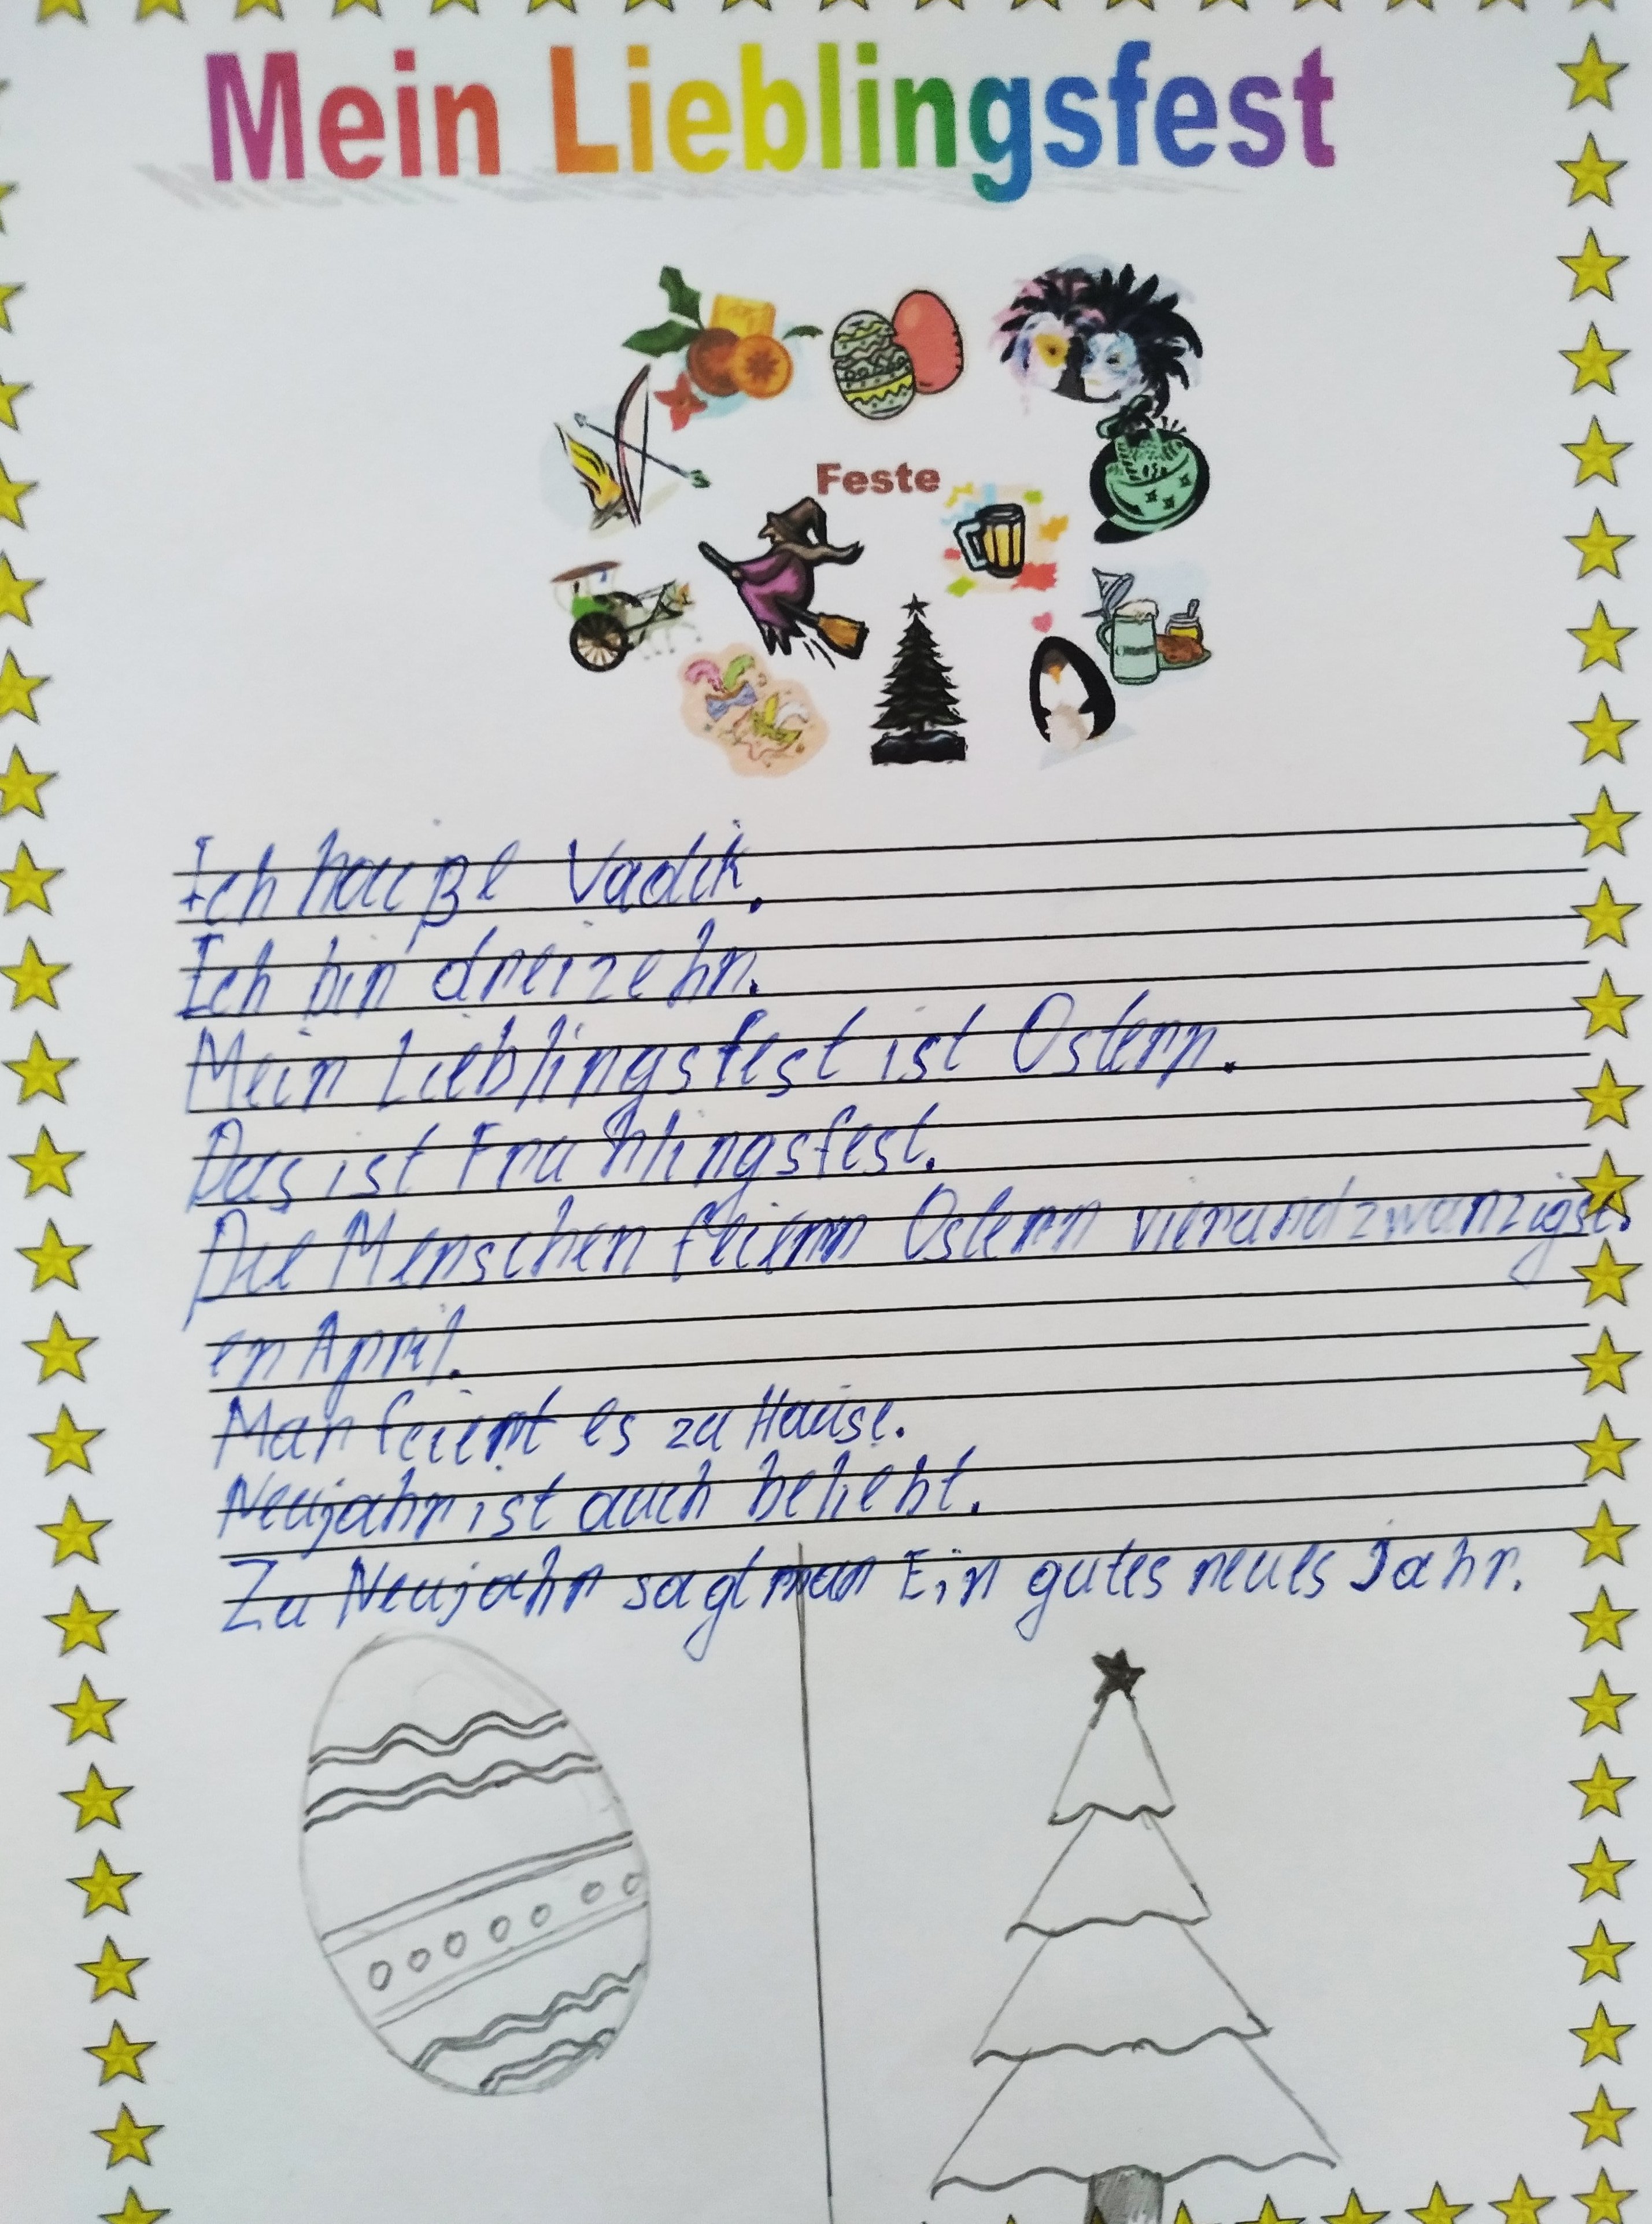 Mein Lieblingsfest
Feste
Ich haiße Vadik.
Ich bin dreizehn.
Mein Lieblingsfest ist Ostern.
Das ist Fruhlingsfest.
Die Menschen feiern Ostern vierundzwanzigst
en April.
Man feiert es zu Hause.
Neujahr ist auch beliebt.
Zu Neujahr sagt man Ein gutes neues Jahr.